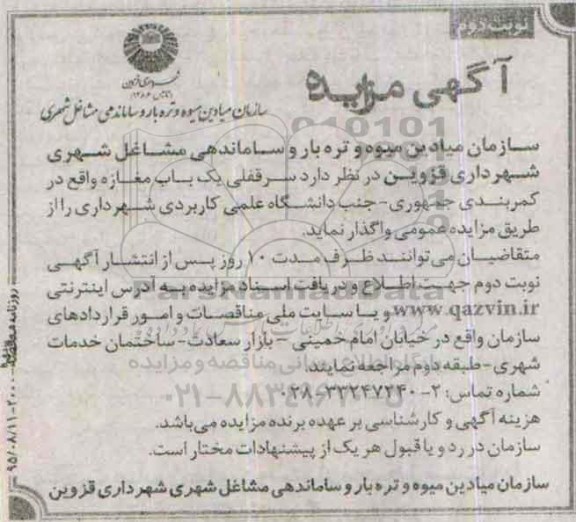 نوبت دوم
شهرداری قزوین
سازمان میادین میوه و تره بار و ساماندهی مشاغل شهری
آگهی مزایده
سازمان میادین میوه و تره بار و ساماندهی مشاغل شهری
شهرداری قزوین در نظر دارد سرقفلی یک باب مغازه واقع در
کمربندی جمهوری - جنب دانشگاه علمی کاربردی شهرداری را از
طریق مزایده عمومی واگذار نماید.
متقاضیان می‌توانند ظرف مدت ۱۰ روز پس از انتشار آگهی
نوبت دوم جهت اطلاع و دریافت اسناد مزایده به آدرس اینترنتی
www.qazvin.ir و یا سایت ملی مناقصات و امور قراردادهای
سازمان واقع در خیابان امام خمینی - بازار سعادت - ساختمان خدمات
شهری - طبقه دوم مراجعه نمایند.
شماره تماس: ۲-۳۳۲۴۷۲۴۰-۰۲۸
هزینه آگهی و کارشناسی بر عهده برنده مزایده می‌باشد.
سازمان در رد و یا قبول هر یک از پیشنهادات مختار است.
سازمان میادین میوه و تره بار و ساماندهی مشاغل شهری شهرداری قزوین
ParsNamadData
۰۲۱-۸۸۳۴۹۶۷۰
روزنامه
۹۵/۰۸/۱۱-۲۰۰۰